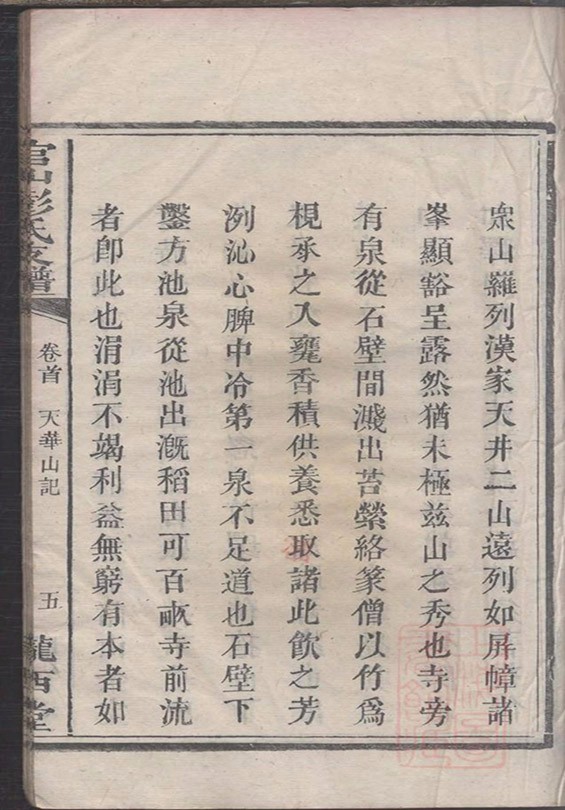 眾山羅列漢家天井二山遠列如屏幛諸
峯顯豁呈露然猶未極茲山之秀也寺旁
有泉從石壁間濺出苔縈絡篆僧以竹為
梘承之入甕香積供養悉取諸此飲之芳
冽沁心脾中冷第一泉不足道也石壁下
鑿方池泉從池出漑稻田可百畝寺前流
者卽此也涓涓不竭利益無窮有本者如
官山彭氏支譜
卷首 天華山記
五
隴西堂